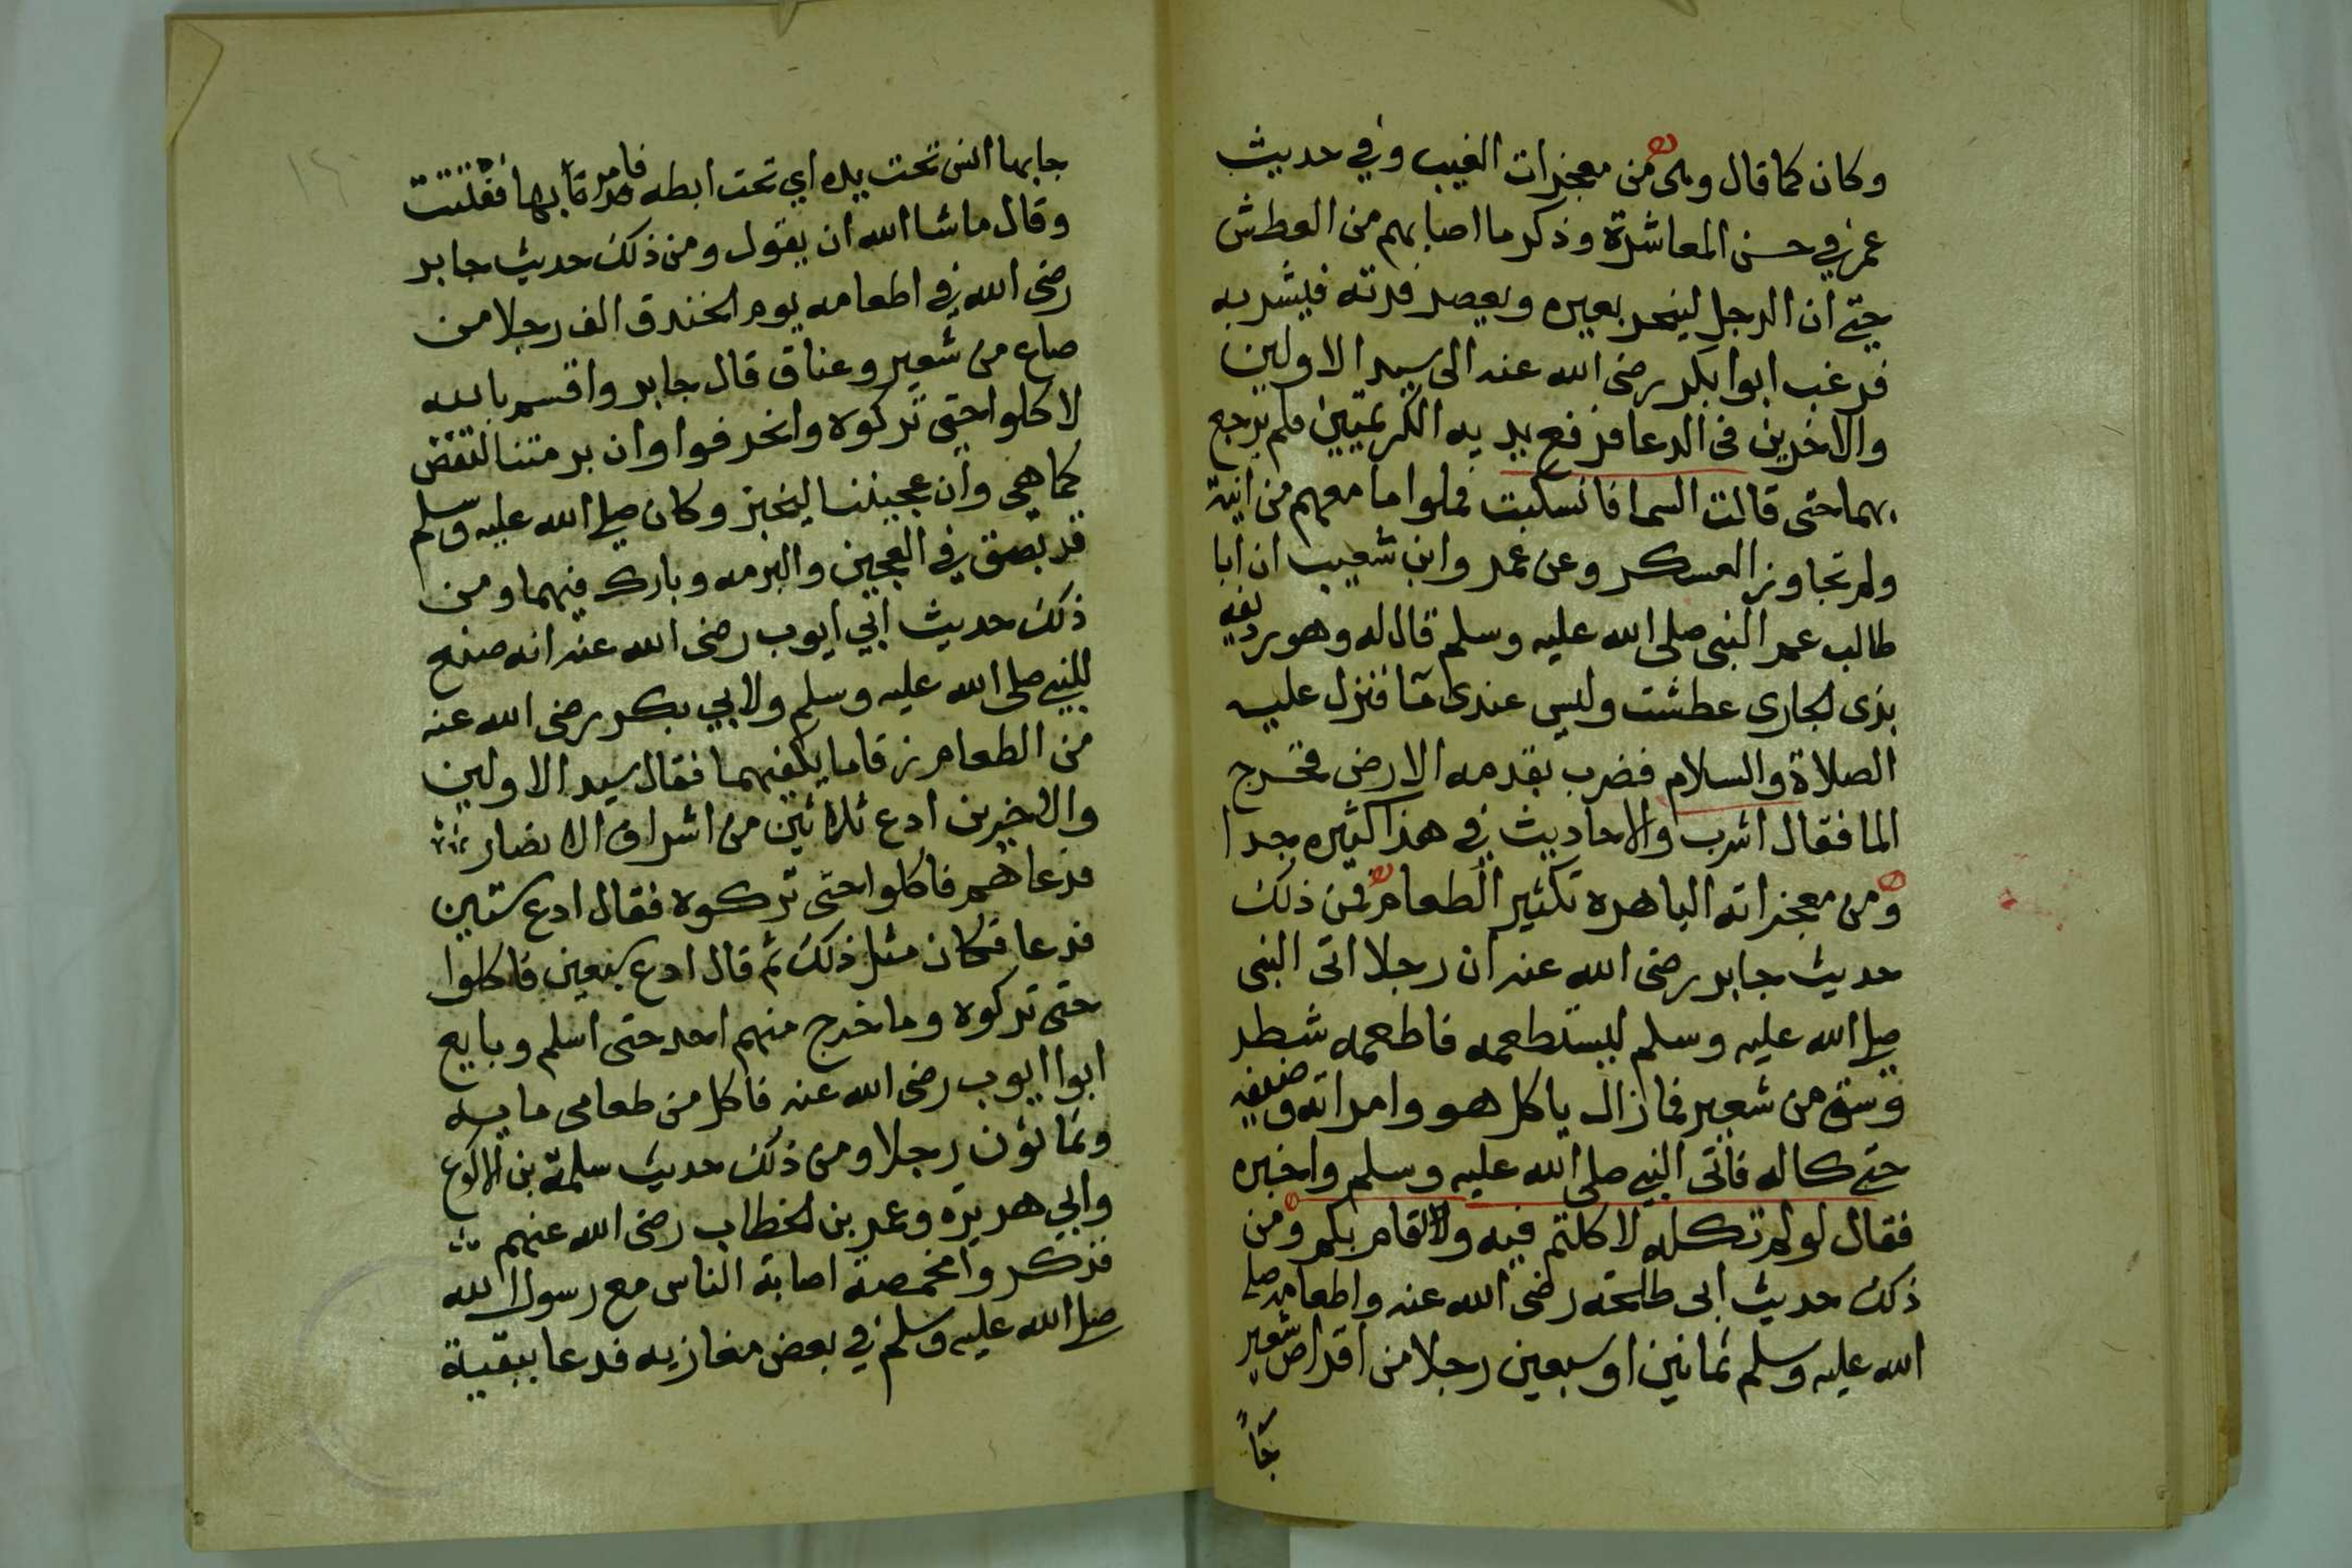 وكان كما قال وهى من معجزات الغيب وفي حديث
عمر في حسن المعاشرة وذكر ما اصابهم من العطش
حتى ان الرجل لينحر بعيره ويعصر فرثه فيشربه
فرغب ابوا بكر رضى الله عنه الى سيد الاولين
والاخرين فى الدعا فرفع يديه الكريمتين فلم يرجع
بهما حتى قالت السما فانسكبت فملوا ما معهم من انية
ولم تجاوز العسكر وعن عمر وابن شعيب ان ابا
طالب عمر النبى صلى الله عليه وسلم قال له وهو رديفه
بذى الجارى عطشت وليس عندى مآ فنزل عليه
الصلاة والسلام فضرب بقدمه الارض فخرج
الما فقال اشرب والاحاديث في هذا كثيره جدا
ومن معجزاته الباهره تكثير الطعام فمن ذلك
حديث جابر رضى الله عنه ان رجلا اتى النبى
صلى الله عليه وسلم ليستطعمه فاطعمه شطر
وسق من شعير فما زال ياكل هو وامراته وضيفه
حتى كاله فاتى النبي صلى الله عليه وسلم واخبره
فقال لو لم تكله لاكلتم فيه ولاقام بكم ومن
ذلك حديث ابى طلحة رضى الله عنه واطعامه صلى
الله عليه وسلم ثمانين او سبعين رجلا من اقراص شعير
جآ
جا بها انس تحت يده اي تحت ابطه فامر بها ففتت
وقال ما شا الله ان يقول ومن ذلك حديث جابر
رضى الله في اطعامه يوم الخندق الف رجلا من
صاع من شعير وعناق قال جابر واقسم بالله
لاكلوا حتى تركوه وانحرفوا وان برمتنا لتغض
كما هي وان عجيننا ليخبز وكان صلى الله عليه وسلم
قد بصق في العجين والبرمه وبارك فيهما ومن
ذلك حديث ابي ايوب رضى الله عنه انه صنع
للنبي صلى الله عليه وسلم ولابي بكر رضى الله عنه
من الطعام زقاما يكفيهما فقال سيد الاولين
والاخيرين ادع ثلاثين من اشراف الانصار
فدعاهم فاكلوا حتى تركوه فقال ادع ستين
فدعا فكان مثل ذلك ثم قال ادع سبعين فاكلوا
حتى تركوه وما خرج منهم احد حتى اسلم وبايع
ابوا ايوب رضى الله عنه فاكل من طعامى مايه
وثمانون رجلا ومن ذلك حديث سلمة بن الاكوع
وابي هريره وعمر بن الخطاب رضى الله عنهم
فذكروا مخمصة اصابة الناس مع رسول الله
صلى الله عليه وسلم في بعض مغازيه فدعا ببقية